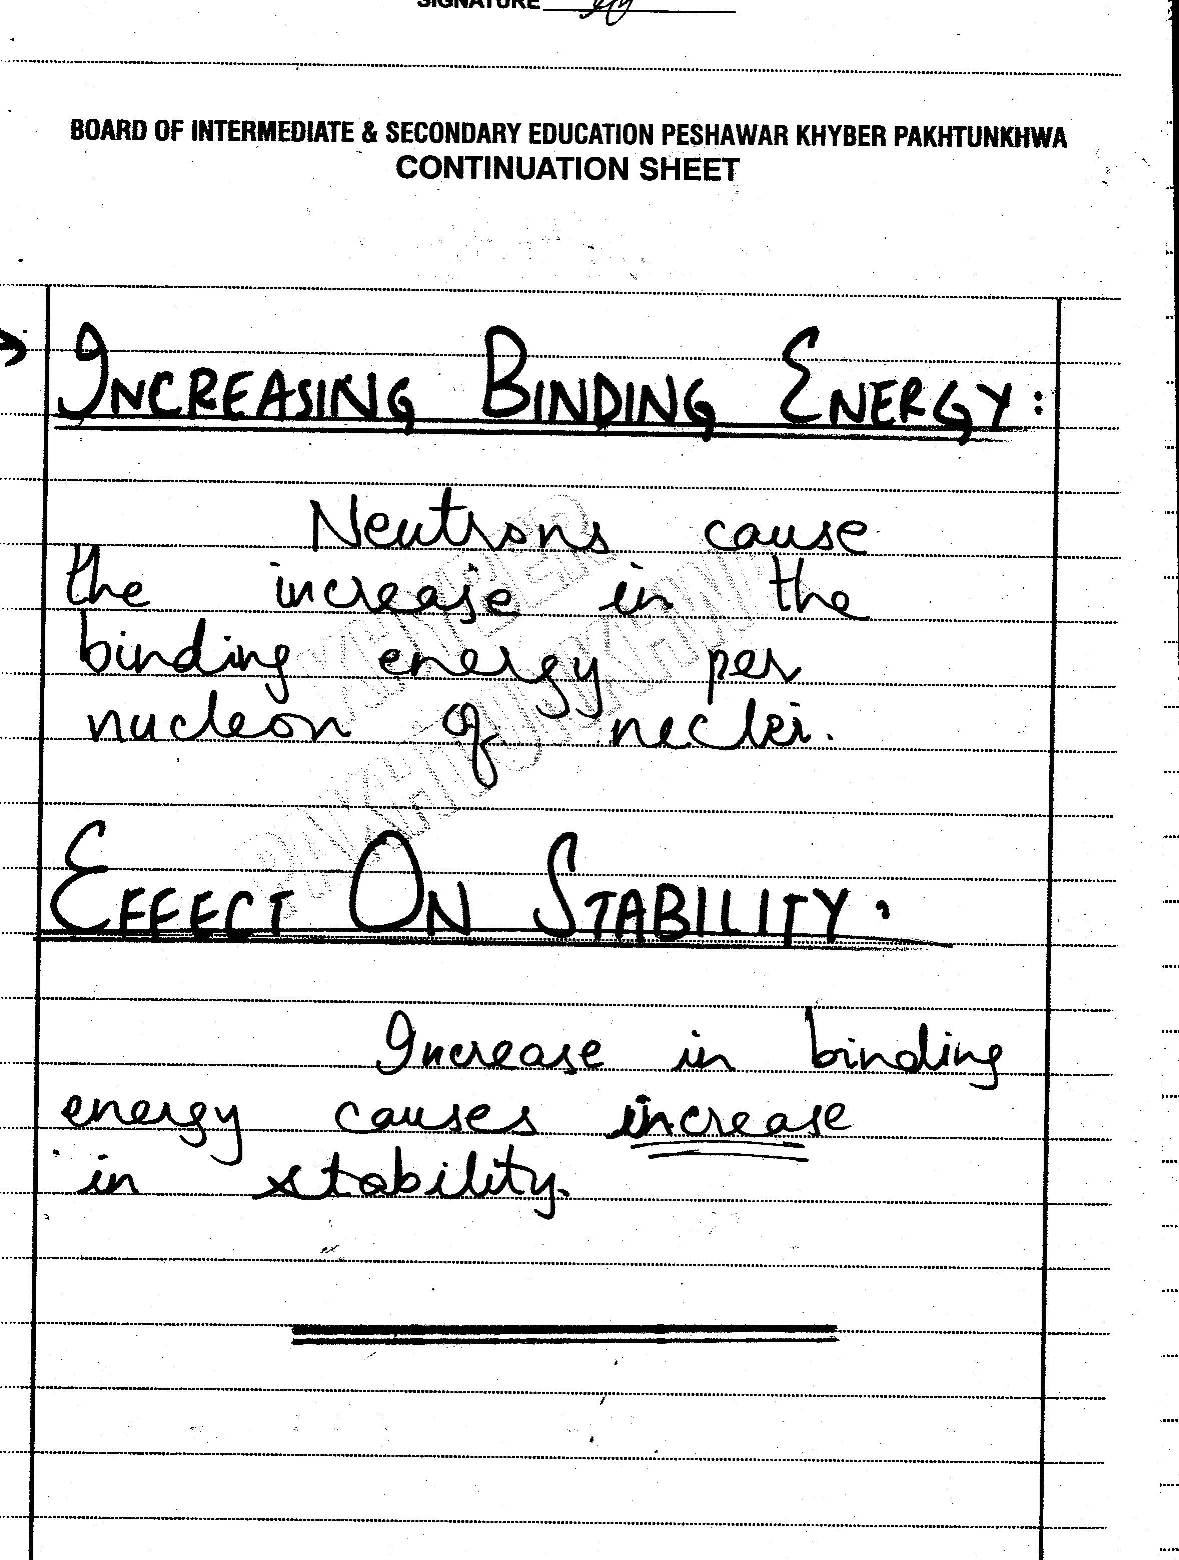 SIGNATURE
BOARD OF INTERMEDIATE & SECONDARY EDUCATION PESHAWAR KHYBER PAKHTUNKHWA
CONTINUATION SHEET
INCREASING BINDING ENERGY:
Neutrons cause
the increase in the
binding energy per
nucleon of neclei.
EFFECT ON STABILITY:
Increase in binding
energy causes increase
in stability.
KHYBER
PAKHTUNKHWA